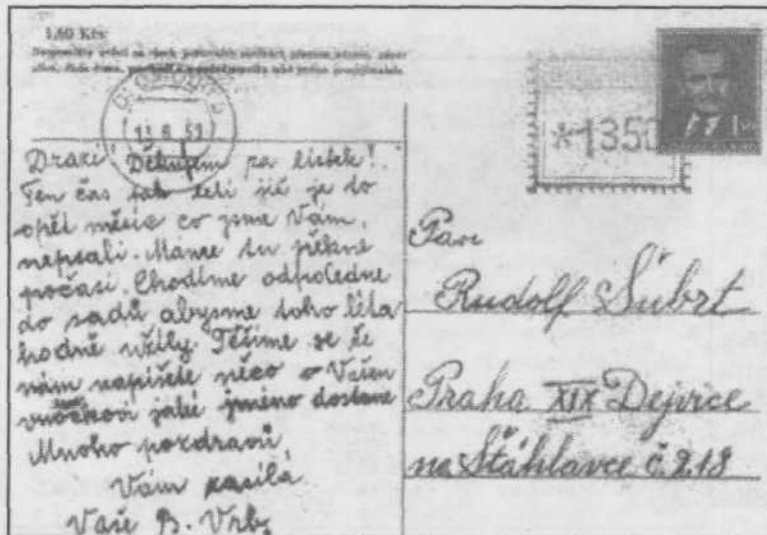 1,60 Kčs
13 6 53
*1350
Drazí! Děkujem za lístek!
Ten čas tak letí již je to
opět měsíc co jsme Vám,
nepsali. Máme tu pěkné
počasí. Chodíme odpoledne
do sadů abysme toho léta
hodně užily. Těšíme se že
nám napíšete něco o Vašem
vnoučkovi jaké jméno dostane
Mnoho pozdravů,
Vám zasílá,
Vaše B. Vrbz
Paní
Rudolf Šubrt
Praha XIX Dejvice
na Štáhlavce č. 218